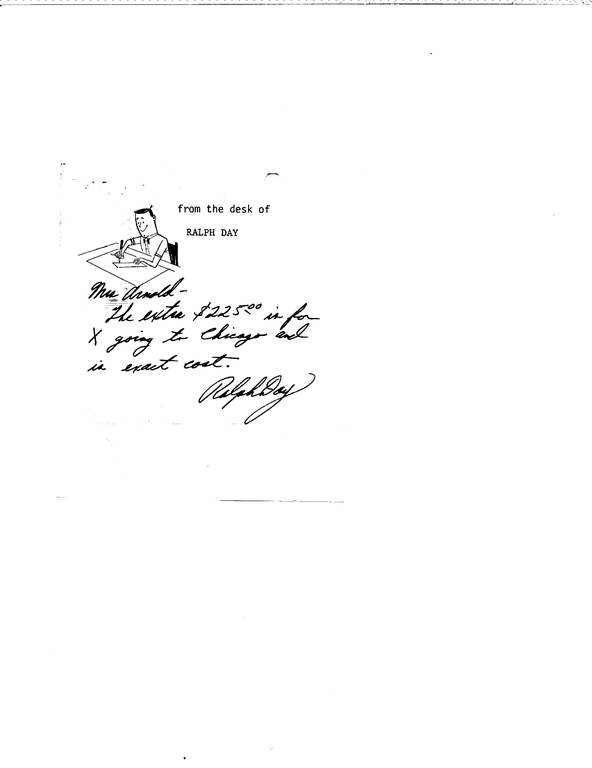 from the desk of
RALPH DAY
Mrs Arnold-
The extra $225.00 is for
X going to Chicago and
is exact cost.
Ralph Day